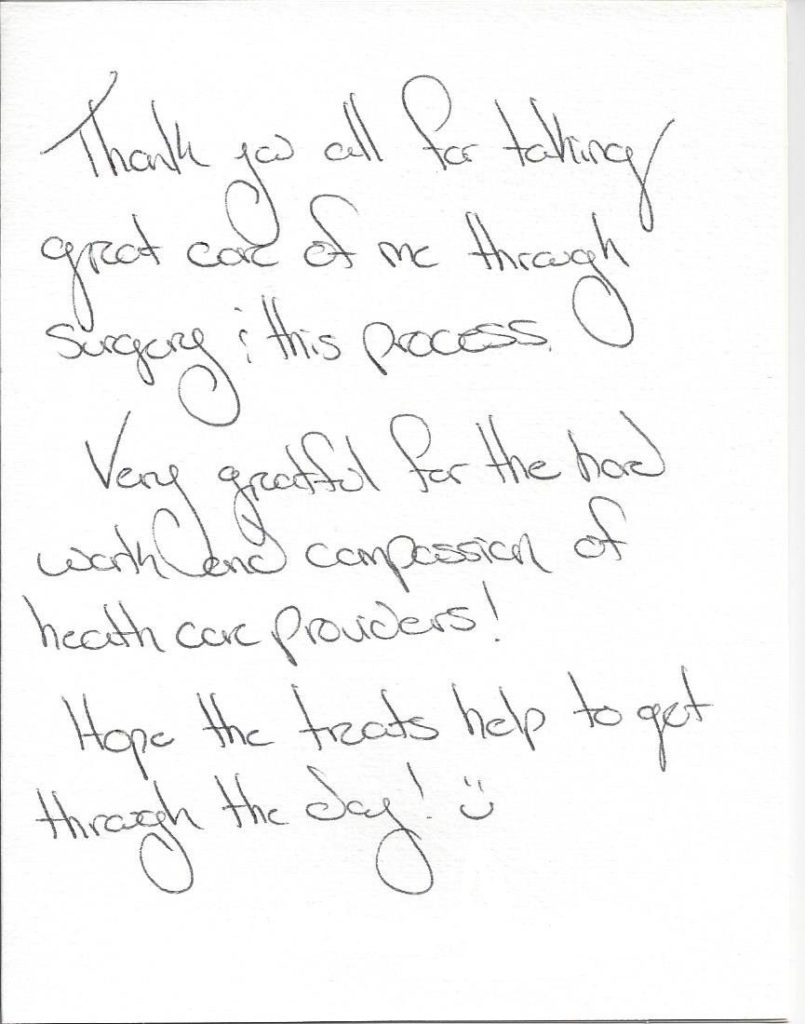 Thank you all for taking
great care of me through
surgery & this process.
Very grateful for the hard
work and compassion of
health care providers!
Hope the treats help to get
through the day! :)